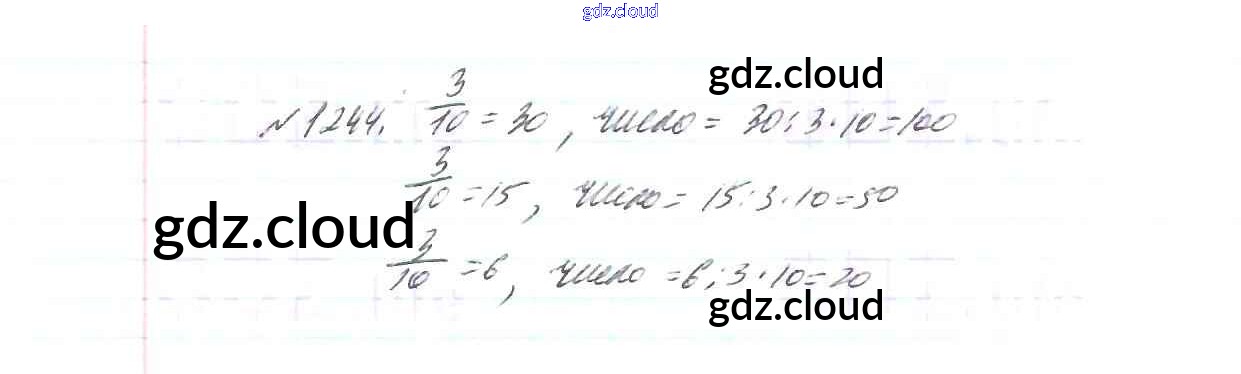 gdz.cloud
№1244. 3/10 = 30, число = 30:3·10=100
gdz.cloud
3/10 = 15, число = 15:3·10=50
gdz.cloud
3/10 = 6, число = 6:3·10=20
gdz.cloud